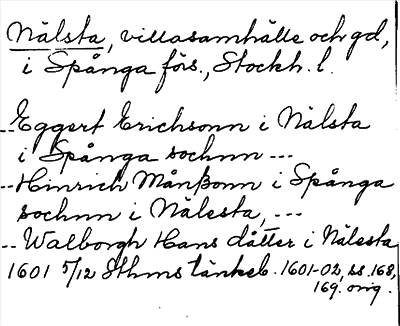 Nälsta, villasamhälle och gd,
i Spånga förs., Stockh. l.
-- Eggert Erichsonn i Nälsta
i Spånga sochnn ---
-- Hinrich Månßonn i Spånga
sochnn i Nälesta, ---
-- Walborgh Hans dåtter i Nälesta
1601 5/12 Sthms tänkeb. 1601-02, ss. 168,
169. orig.